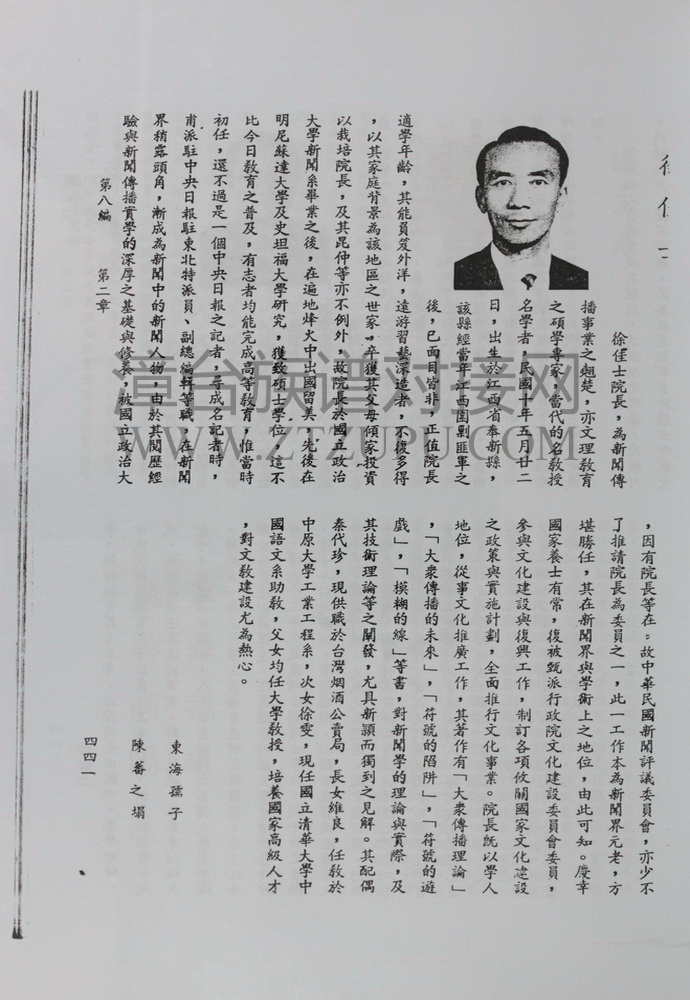 徐佳士院長，為新聞傳
播事業之翹楚，亦文理敎育
之碩學專家，當代的名敎授
名學者，民國十年五月廿二
日，出生於江西省奉新縣，
該縣經當年江西圍剿匪軍之
後，已面目皆非，正值院長
適學年齡，其能員笈外洋，遠游習藝深造者，不復多得
，以其家庭背景為該地區之世家，卒獲其父母傾家投資
以栽培院長，及其昆仲等亦不例外，故院長於國立政治
大學新聞系畢業之後，在遍地烽火中出國留美，先後在
明尼蘇達大學及史坦福大學研究，獲致碩士學位，這不
比今日敎育之普及，有志者均能完成高等敎育，惟當時
初任，還不過是一個中央日報之記者，尋成名記者時，
甫派駐中央日報駐東北特派員、副總編輯等職，在新聞
界稍露頭角，漸成為新聞中的新聞人物，由於其閱歷經
驗與新聞傳播實學的深厚之基礎與修養，被國立政治大
，因有院長等在。故中華民國新聞評議委員會，亦少不
了推請院長為委員之一，此一工作本為新聞界元老，方
堪勝任，其在新聞界與學術上之地位，由此可知。慶幸
國家養士有常，復被甄派行政院文化建設委員會委員，
參與文化建設與復興工作，制訂各項攸關國家文化建設
之政策與實施計劃，全面推行文化事業。院長旣以學人
地位，從事文化推廣工作，其著作有「大衆傳播理論」
，「大衆傳播的未來」，「符號的陷阱」，「符號的遊
戲」，「模糊的線」等書，對新聞學的理論與實際，及
其技術理論等之闡發，尤具新穎而獨到之見解。其配偶
秦代珍，現供職於台灣烟酒公賣局，長女維良，任敎於
中原大學工業工程系，次女徐雯，現任國立清華大學中
國語文系助敎，父女均任大學敎授，培養國家高級人才
，對文敎建設尤為熱心。
東海孺子
陳蕃之塌
第八編　第二章
四四一
WWW.ZTZUPU.COM